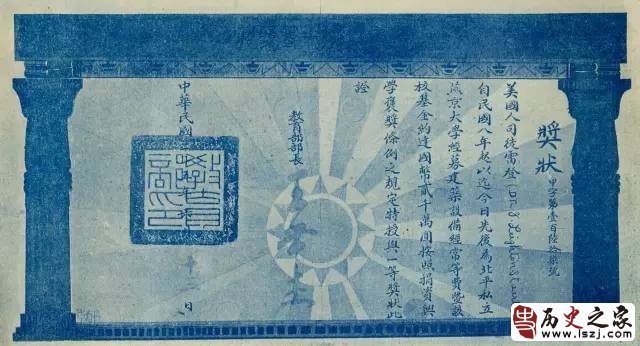 獎狀
字第壹百陸拾柒號
美國人司徒雷登(Dr. J. Leighton Stuart)
自民國八年起以迄今日先後為北平私立
燕京大學經募建築設備經常等費暨該
校基金約達國幣貳千萬圓按照捐資興
學褒獎條例之規定特授與一等獎狀此
證
教育部部長
中華民國
十二 日
教育部印
史 历史之家
www.lszj.com